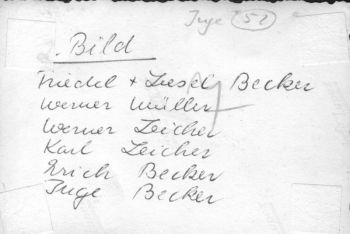 Inge (52)
. Bild
Friedel + Liesel Becker
Werner Müller
Werner Leicher
Karl Leicher
Erich Becker
Inge Becker